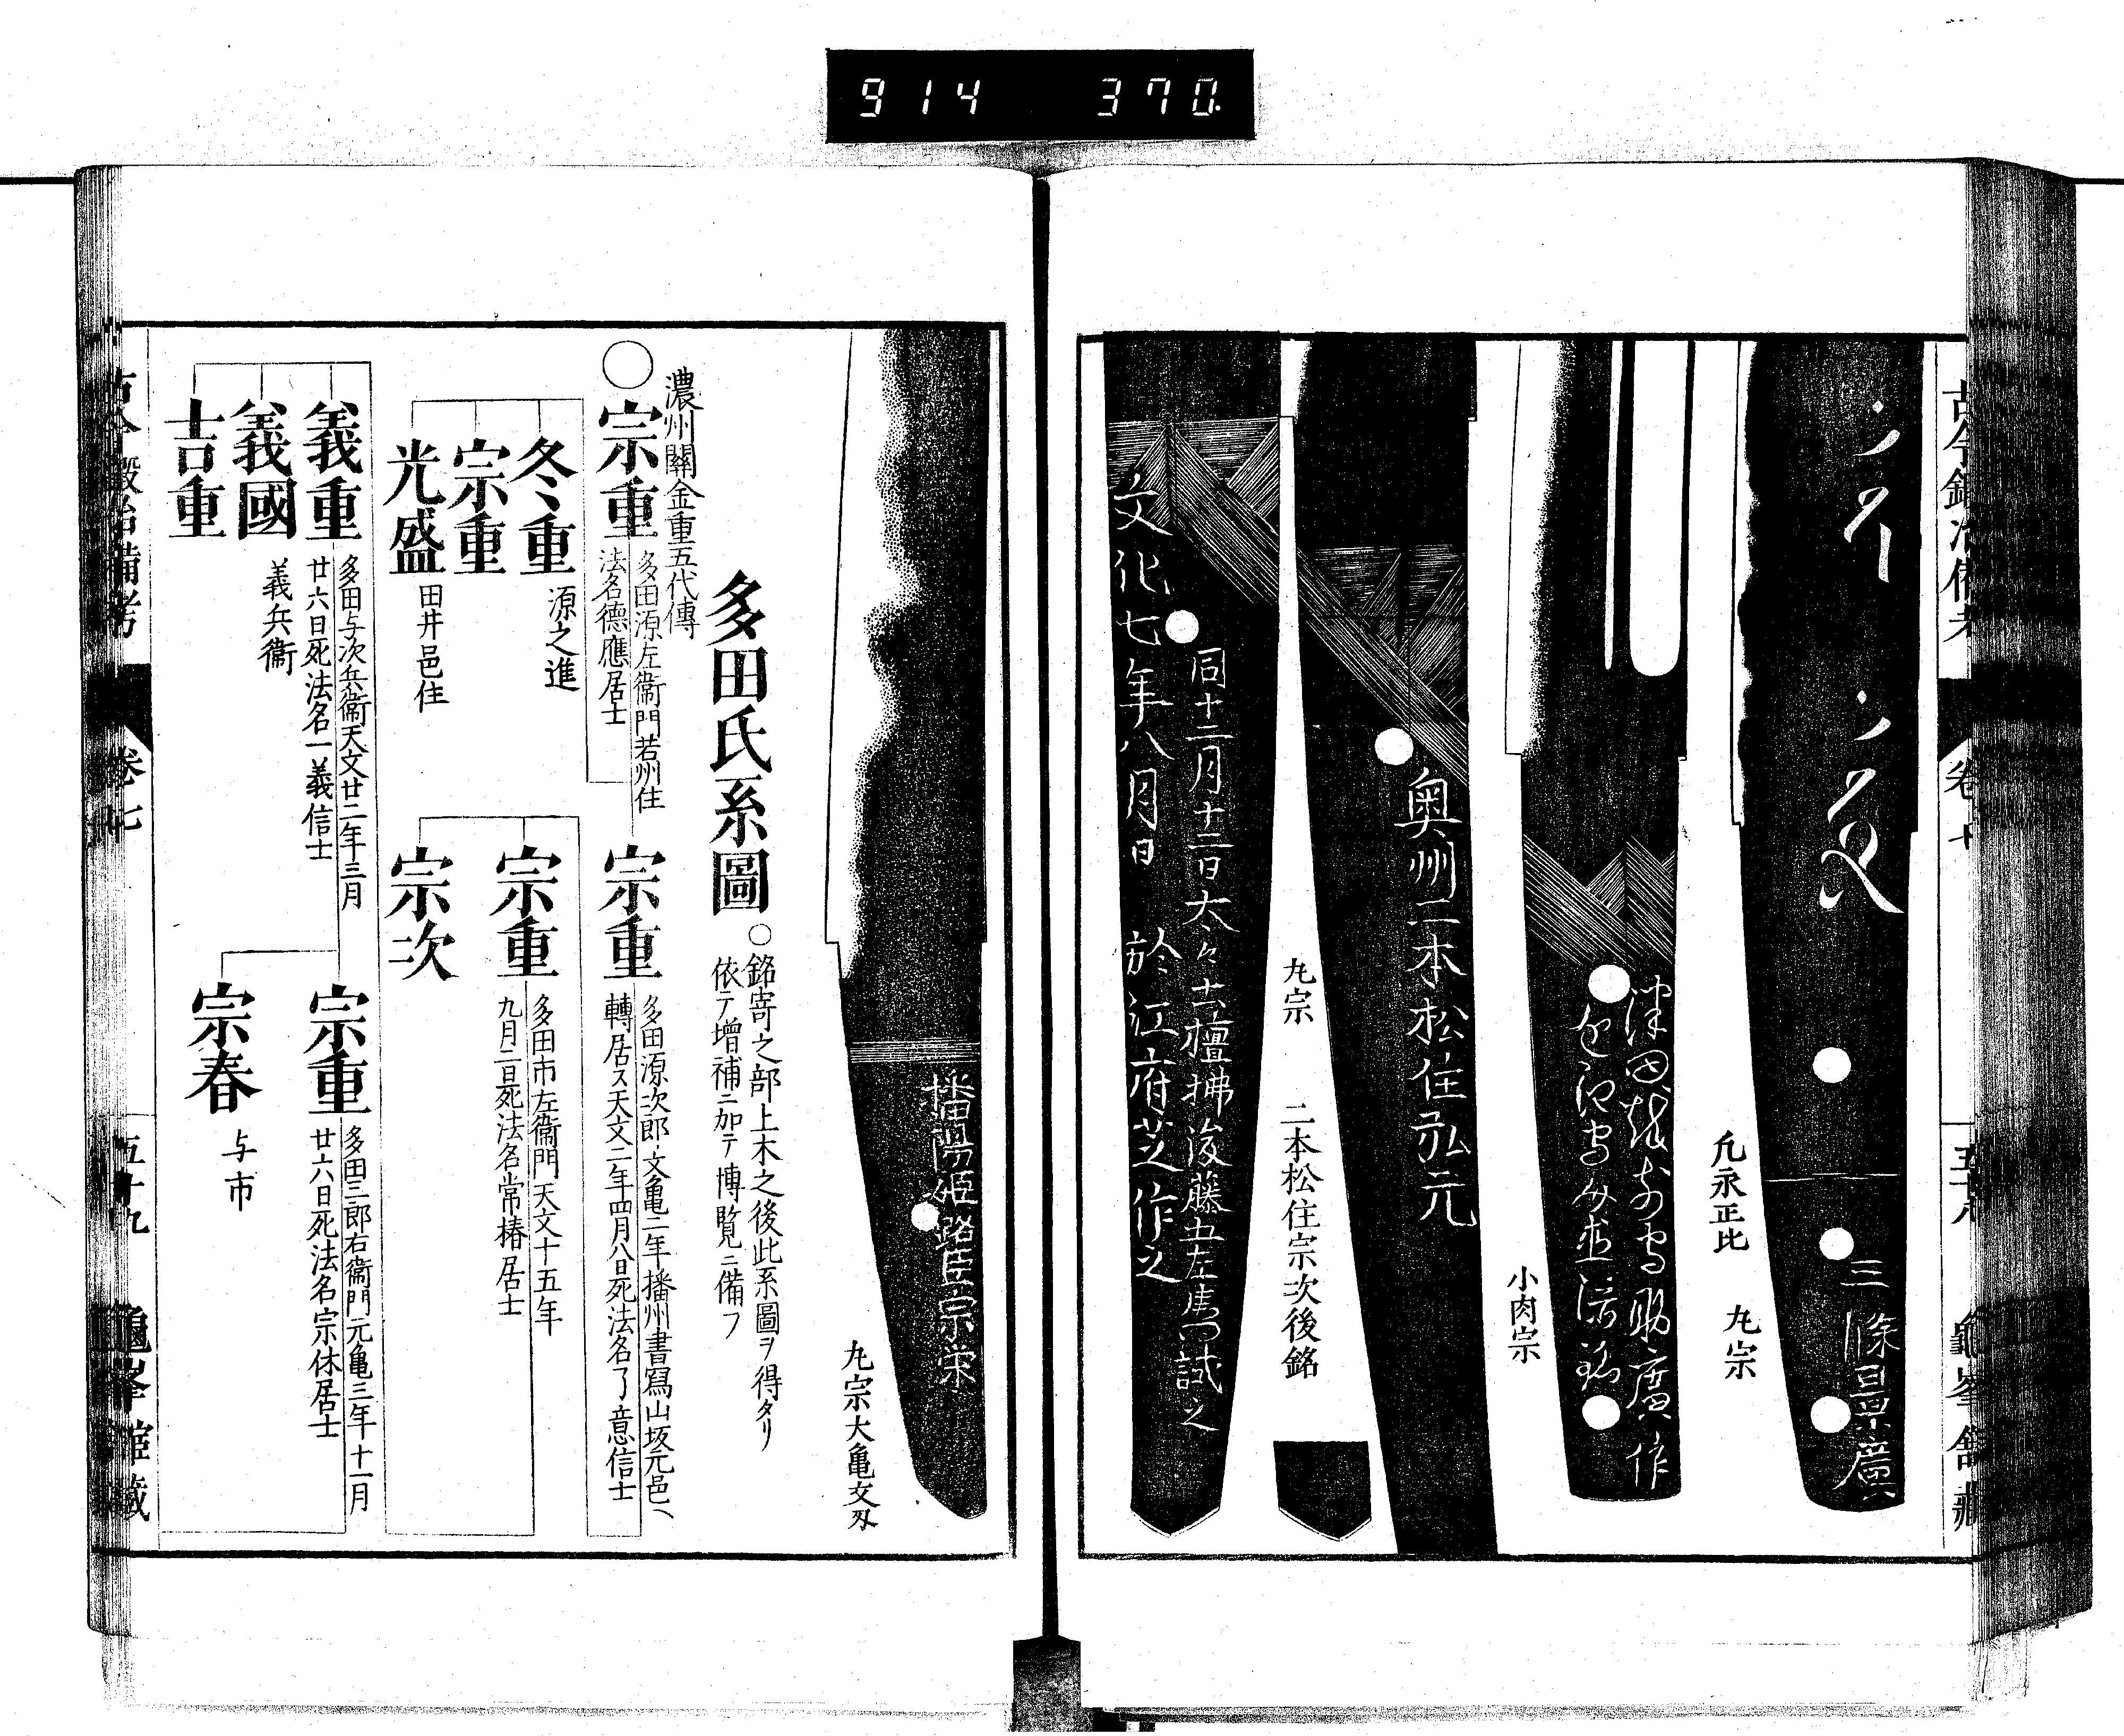 914 370
古今鍛冶備考
卷七
五十八
龜峯館藏
三條吉廣
凢永正比
九宗
津田越前守助廣作
小肉宗
奥州二本松住弘元
九宗
二本松住宗次後銘
同十二月十二日太々土檀拂後藤五左馬門試之
文化七年八月日 於江府芝作之
播陽姫路臣宗栄
九宗大亀文刄
多田氏系圖
○銘寄之部上木之後此系圖ヲ得タリ
依テ增補ニ加テ博覧ニ備フ
濃州關金重五代傳
○宗重
多田源左衞門若州住
法名德應居士
宗重
多田源次郎文亀二年播州書寫山坂元邑ヘ
轉居ス天文二年四月八日死法名了意信士
冬重
源之進
宗重
光盛
田井邑住
宗重
多田市左衞門天文十五年
九月二日死法名常椿居士
宗次
義重
多田与次兵衞天文廿二年三月
廿六日死法名一義信士
義國
義兵衞
吉重
宗重
多田三郎右衞門元亀三年十一月
廿六日死法名宗休居士
宗春
与市
古今鍛冶備考
卷七
五十九
龜峯館藏